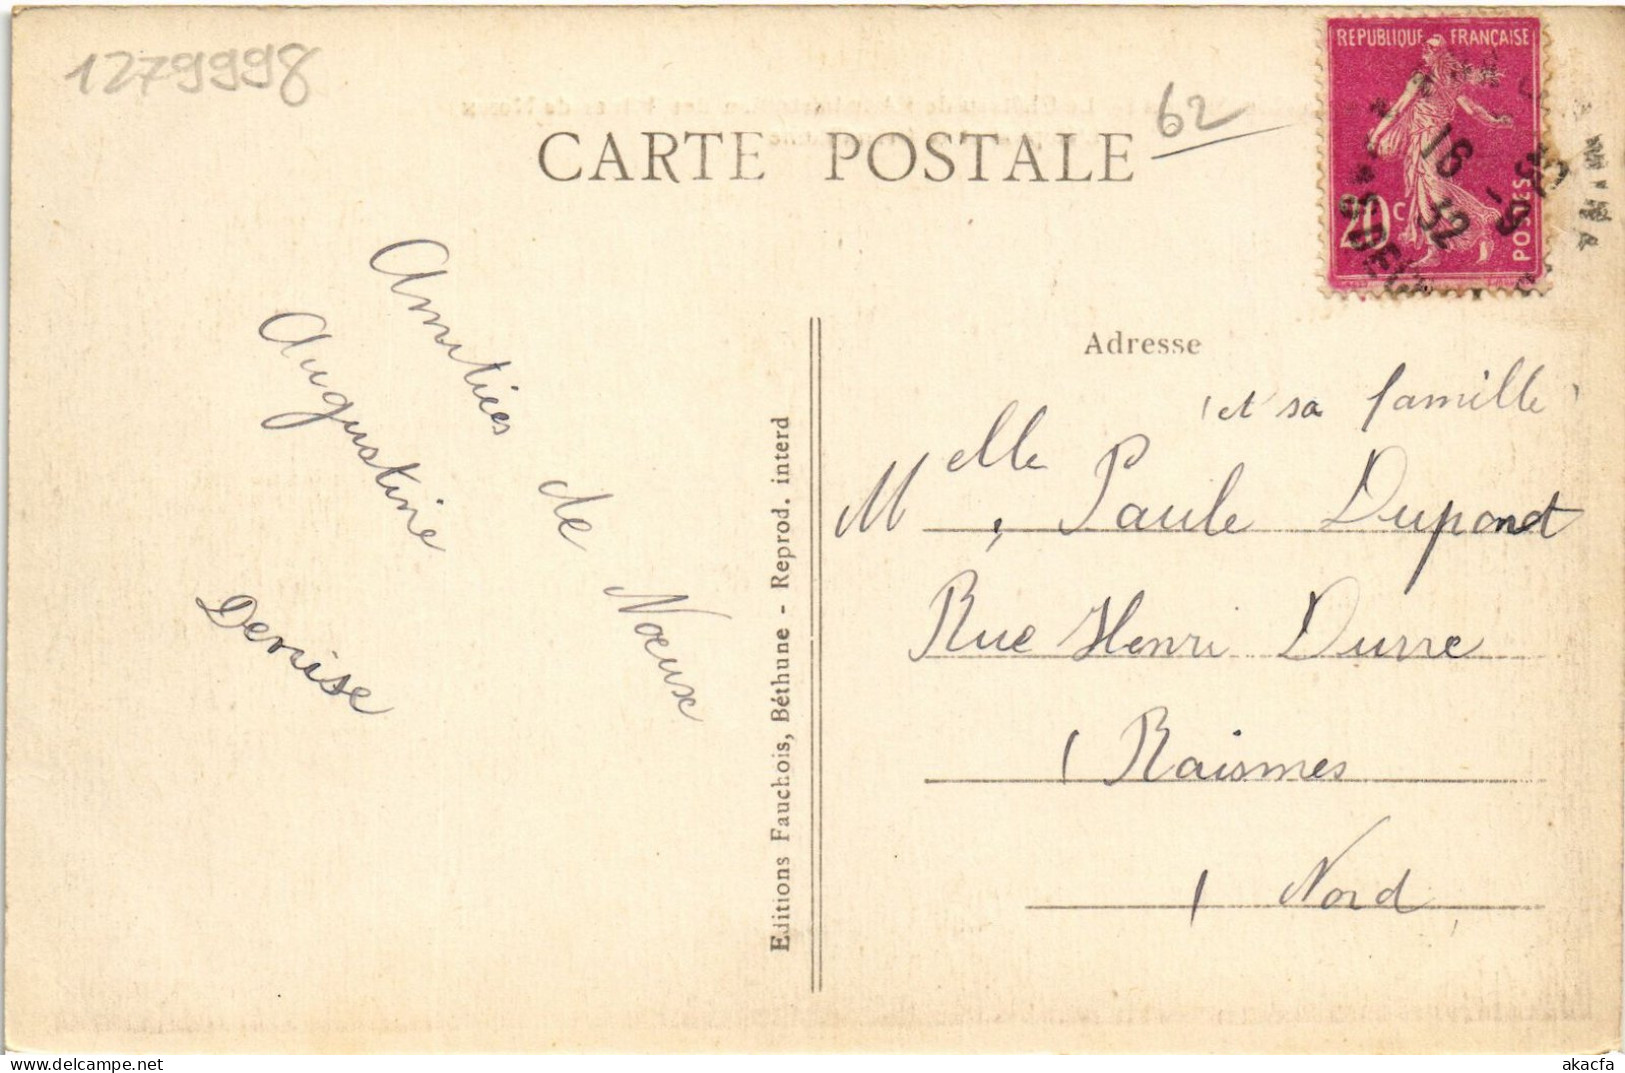 1279998
62
CARTE POSTALE
REPUBLIQUE FRANÇAISE
20 c
POSTES
16
32
Adresse
Amitiées de Nœux
Augustine
Denise
Editions Fauchois, Béthune - Reprod. interd
(et sa famille)
Melle, Paule Dupont
Rue Henri Durre
(Raismes
( Nord
akacfa